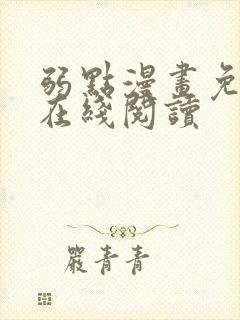 弱點漫畫免
在綫閱讀
嚴青青